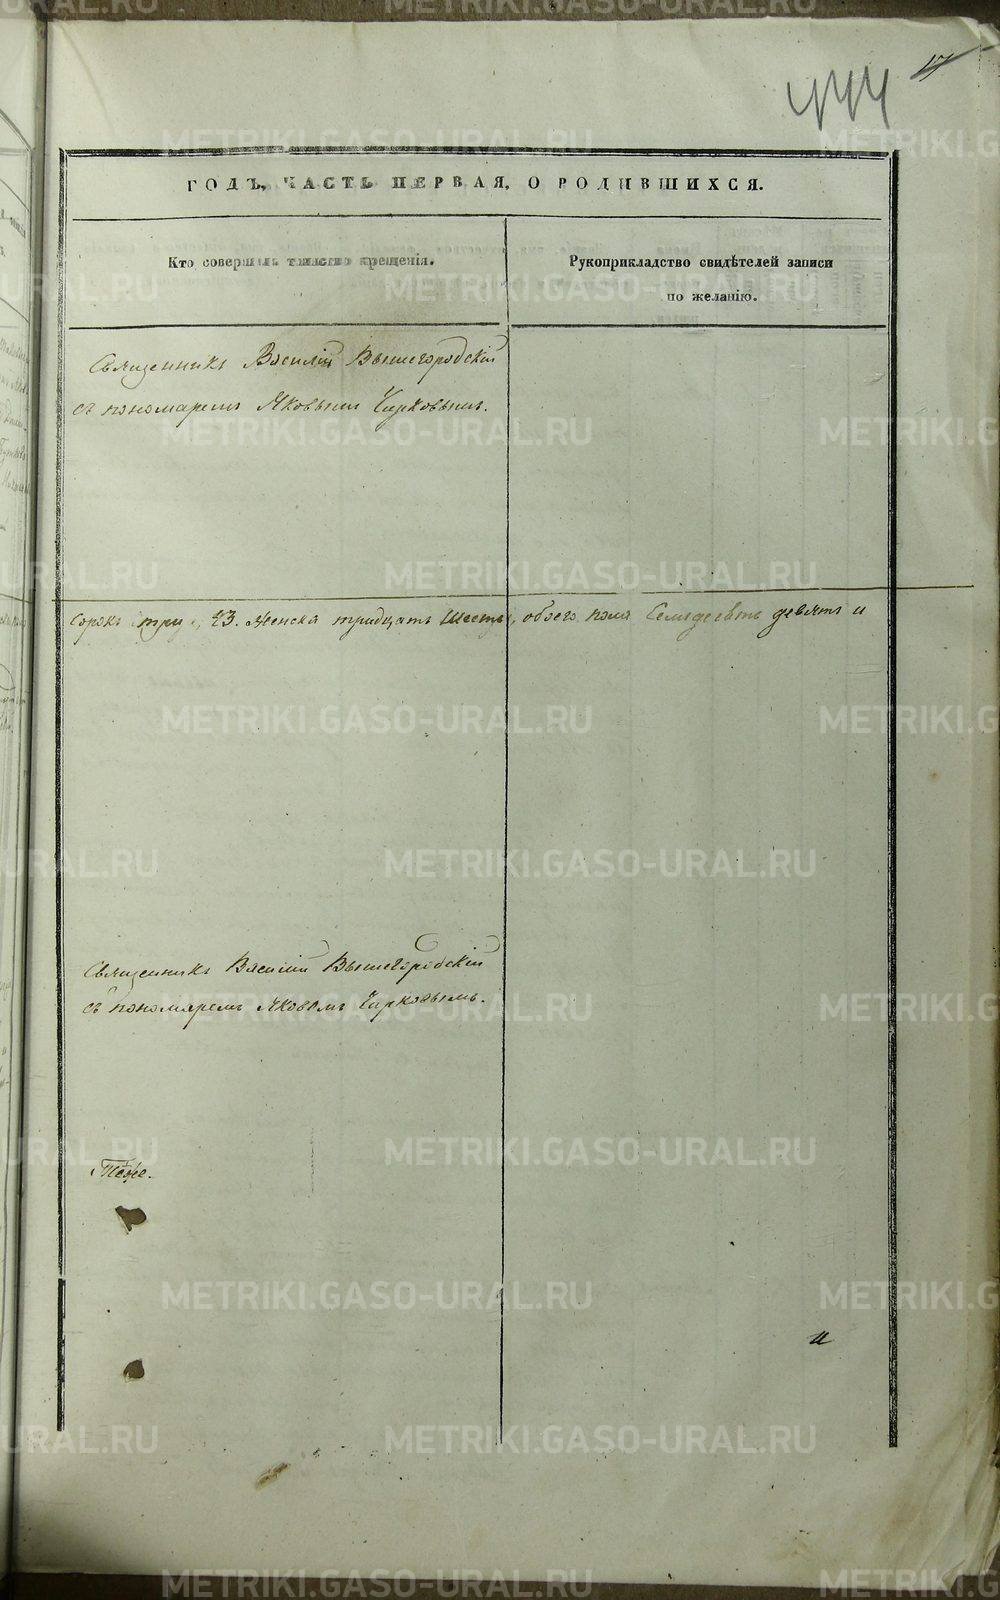 17
444
ГОДЪ, ЧАСТЬ ПЕРВАЯ, О РОДИВШИХСЯ.
Кто совершалъ таинство крещенія.
Рукоприкладство свидѣтелей записи
по желанію.
Священникъ Василій Вышегородскій
съ пономаремъ Яковымъ Чирковымъ.
Сорокъ три, 43. Женска тридцать шесть, обоего пола Семьдесятъ девять и
Священникъ Василій Вышегородскій
съ пономаремъ Яковомъ Чирковымъ.
Тѣже.
и
METRIKI.GASO-URAL.RU